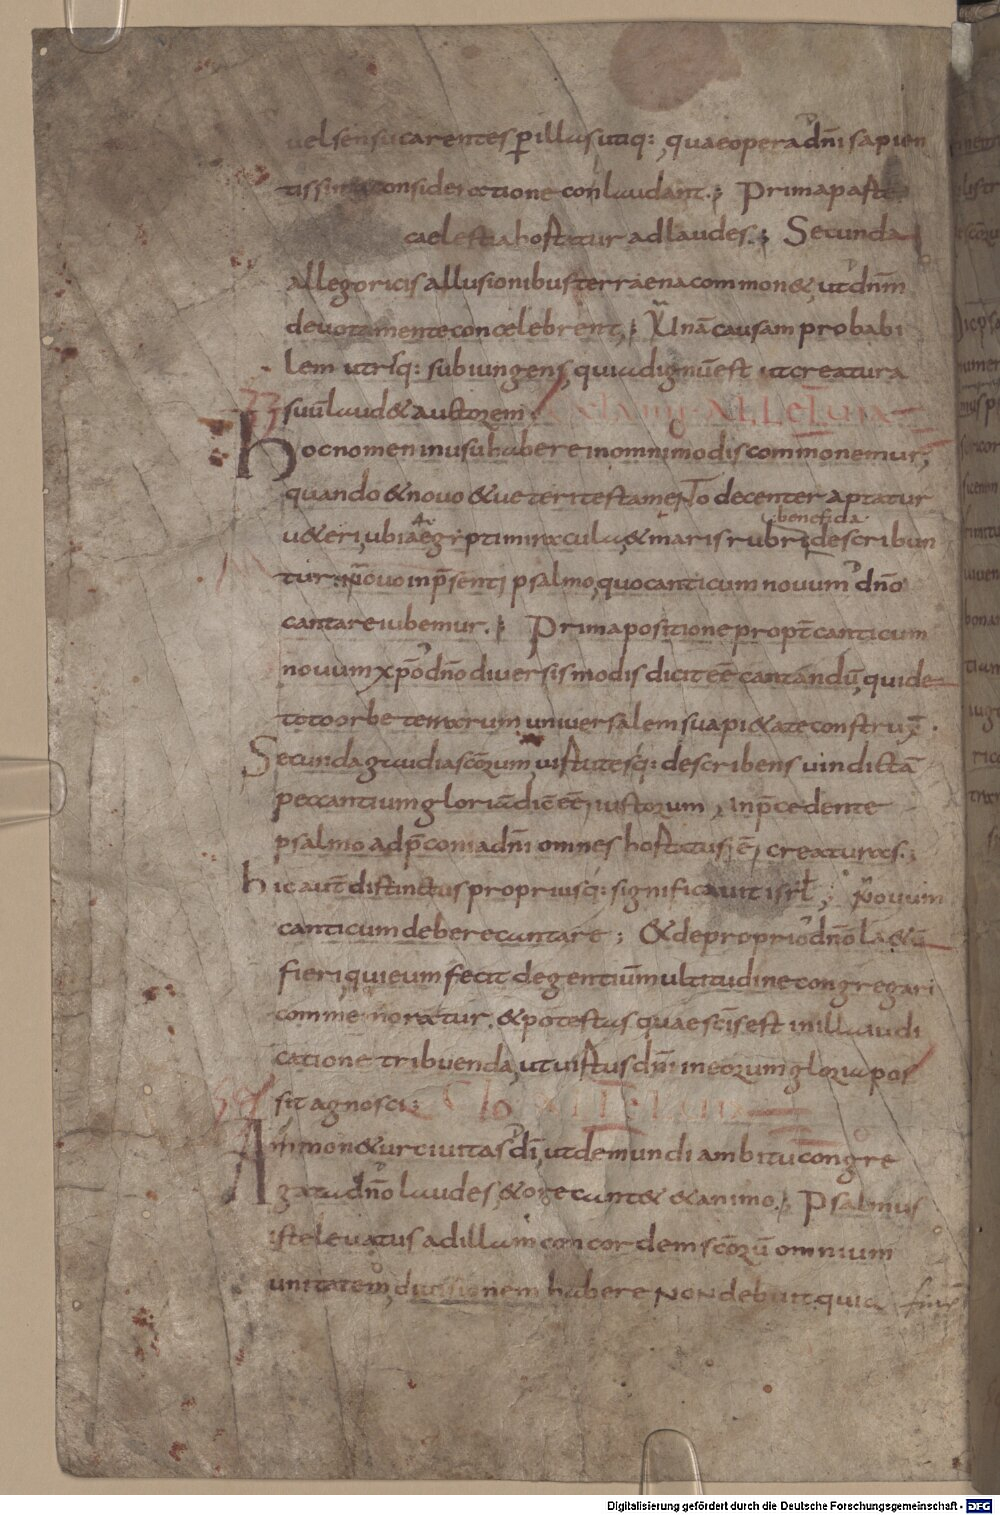 uel sensu carentes ꝑ illus utiq: quae opera dñi sapien
tissima consideratione conlaudant.; Prima parte
caelestia hortatur ad laudes.; Secunda
allegoricis allusionibus terraena commonet, ut dñm
deuota mente concelebrent.; Unã causam probabi
lem utrisq: subiungens, quia dignũ est ut creatura
suũ laudet auctorem.
CXLVIIII ALLELUIA
Hoc nomen in usu habere in omnimodis commonemur,
quando et nouo et ueteri testamento decenter aptatur
beneficia
ueteri, ubi aegypti miracula, et maris rubri describun
tur. nouo in p̄senti psalmo, quo canticum nouum dño
cantare iubemur.; Prima positione propt̄ canticum
nouum xp̄o dño diuersis modis dicit eē cantandũ, qui de
toto orbe terrarum uniuersalem sua pietate construxit.
Secunda gaudia scõrum, uirtutesq: describens uindictã
peccantium gloriã dic̄ eē iustorum, in p̄cedente
psalmo ad p̄conia dñi omnes hortatus ē creaturas.;
hic aut̄ distinctius propriusq: significauit isrl̄; nouum
canticum debere cantare; Et de proprio dño laetũ
fieri, qui eum fecit de gentiũ multitudine congregari
commemoratur. et potestas quae sc̄is est in illa iudi
catione tribuenda, ut uirtus dñi in eorum gloria pos
sit agnosci;
CL ALLELUIA
Ammonetur ciuitas dī, ut de mundi ambitu congre
gata dño laudes, et ore cantet et animo.; Psalmus
iste leuatus ad illam concordem scõrũ omnium
unitatem, diuisionem habere non debuit. quia finis
Digitalisierung gefördert durch die Deutsche Forschungsgemeinschaft - DFG